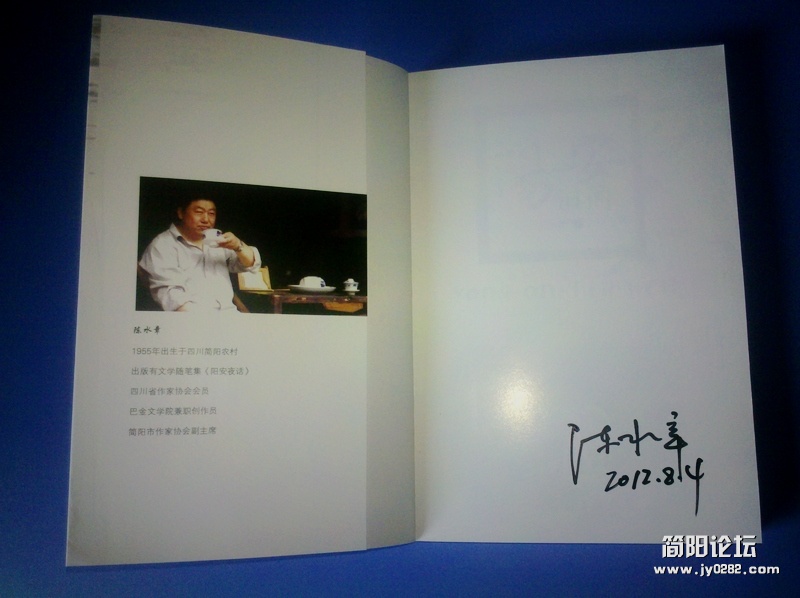 陈水章
1955年出生于四川简阳农村
出版有文学随笔集《阳安夜话》
四川省作家协会会员
巴金文学院兼职创作员
简阳市作家协会副主席
陈水章
2012.8.4
简阳论坛
www.jy0282.com